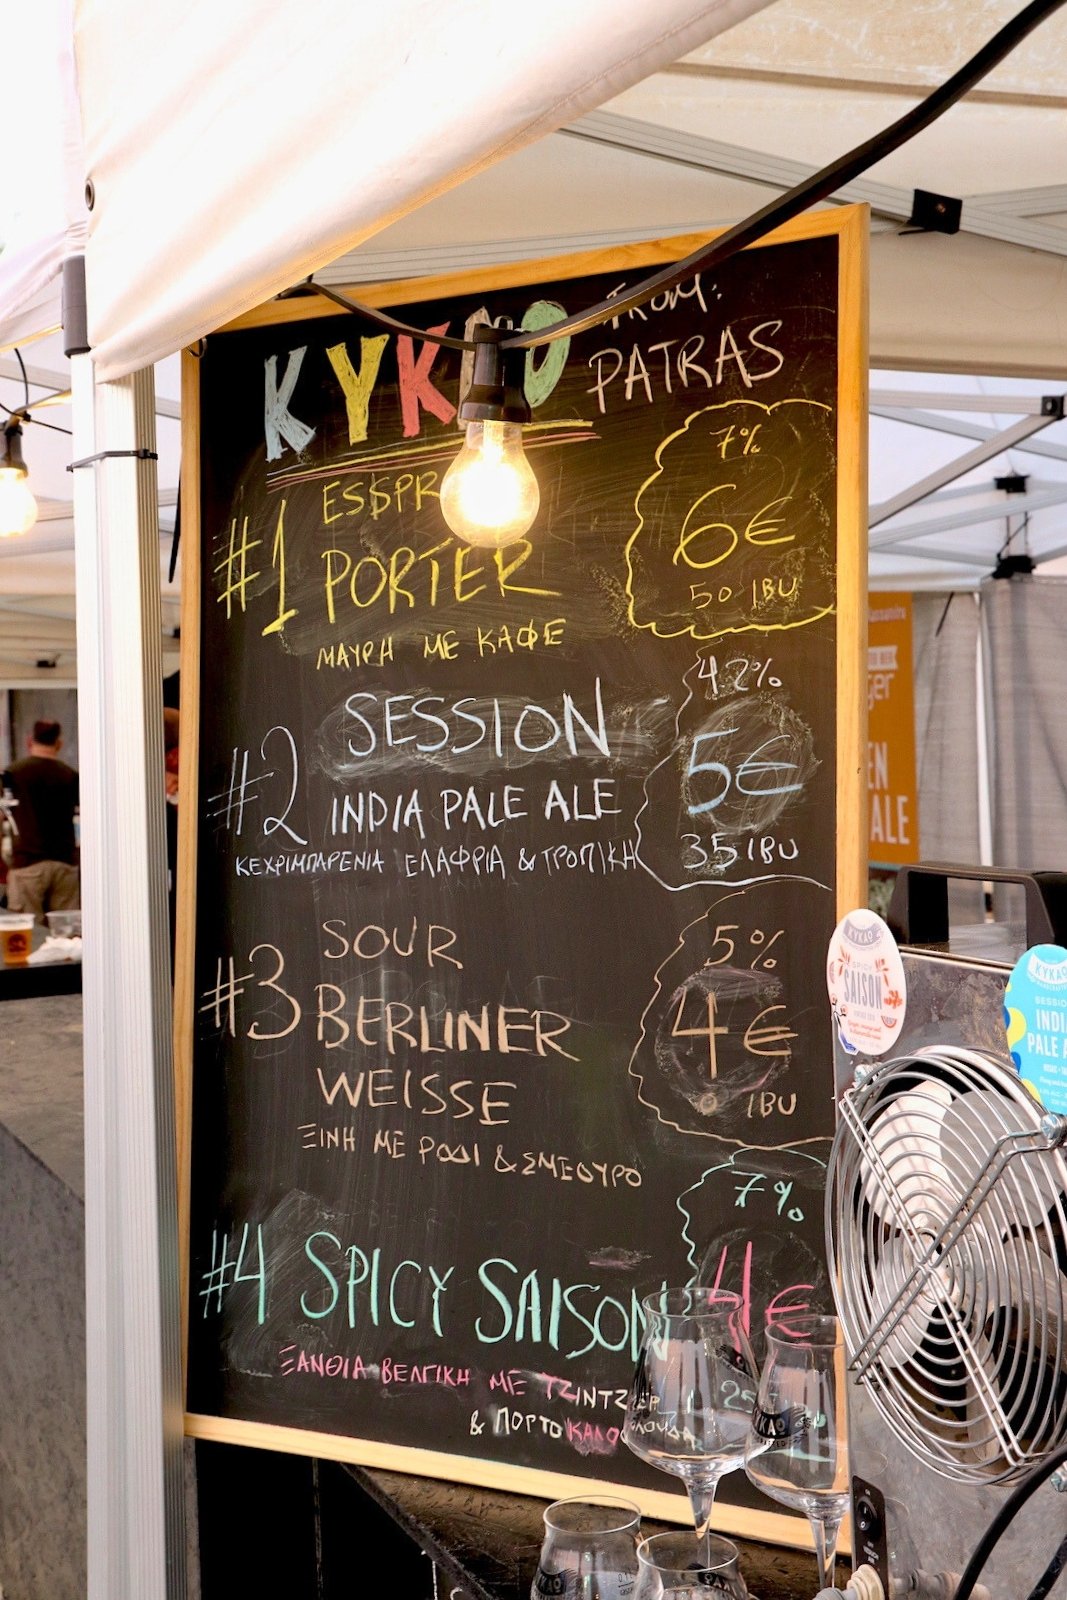 FROM:
PATRAS
#1
PORTER
ΜΑΥΡΗ ΜΕ ΚΑΦΕ
7%
6€
50 IBU
#2
SESSION
INDIA PALE ALE
ΚΕΧΡΙΜΠΑΡΕΝΙΑ ΕΛΑΦΡΙΑ & ΤΡΟΠΙΚΗ
4.2%
5€
35 IBU
#3
SOUR
BERLINER
WEISSE
ΞΙΝΗ ΜΕ ΡΟΔΙ & ΣΜΕΟΥΡΟ
5%
4€
0 IBU
#4
SPICY SAISON
ΞΑΝΘΙΑ ΒΕΛΓΙΚΗ ΜΕ ΤΖΙΝΤΖΕΡ
& ΠΟΡΤΟΚΑΛΟΦΛΟΥΔΑ
7%
4€
KYKAO
SPICY
SAISON
KYKAO
PALE
ALE